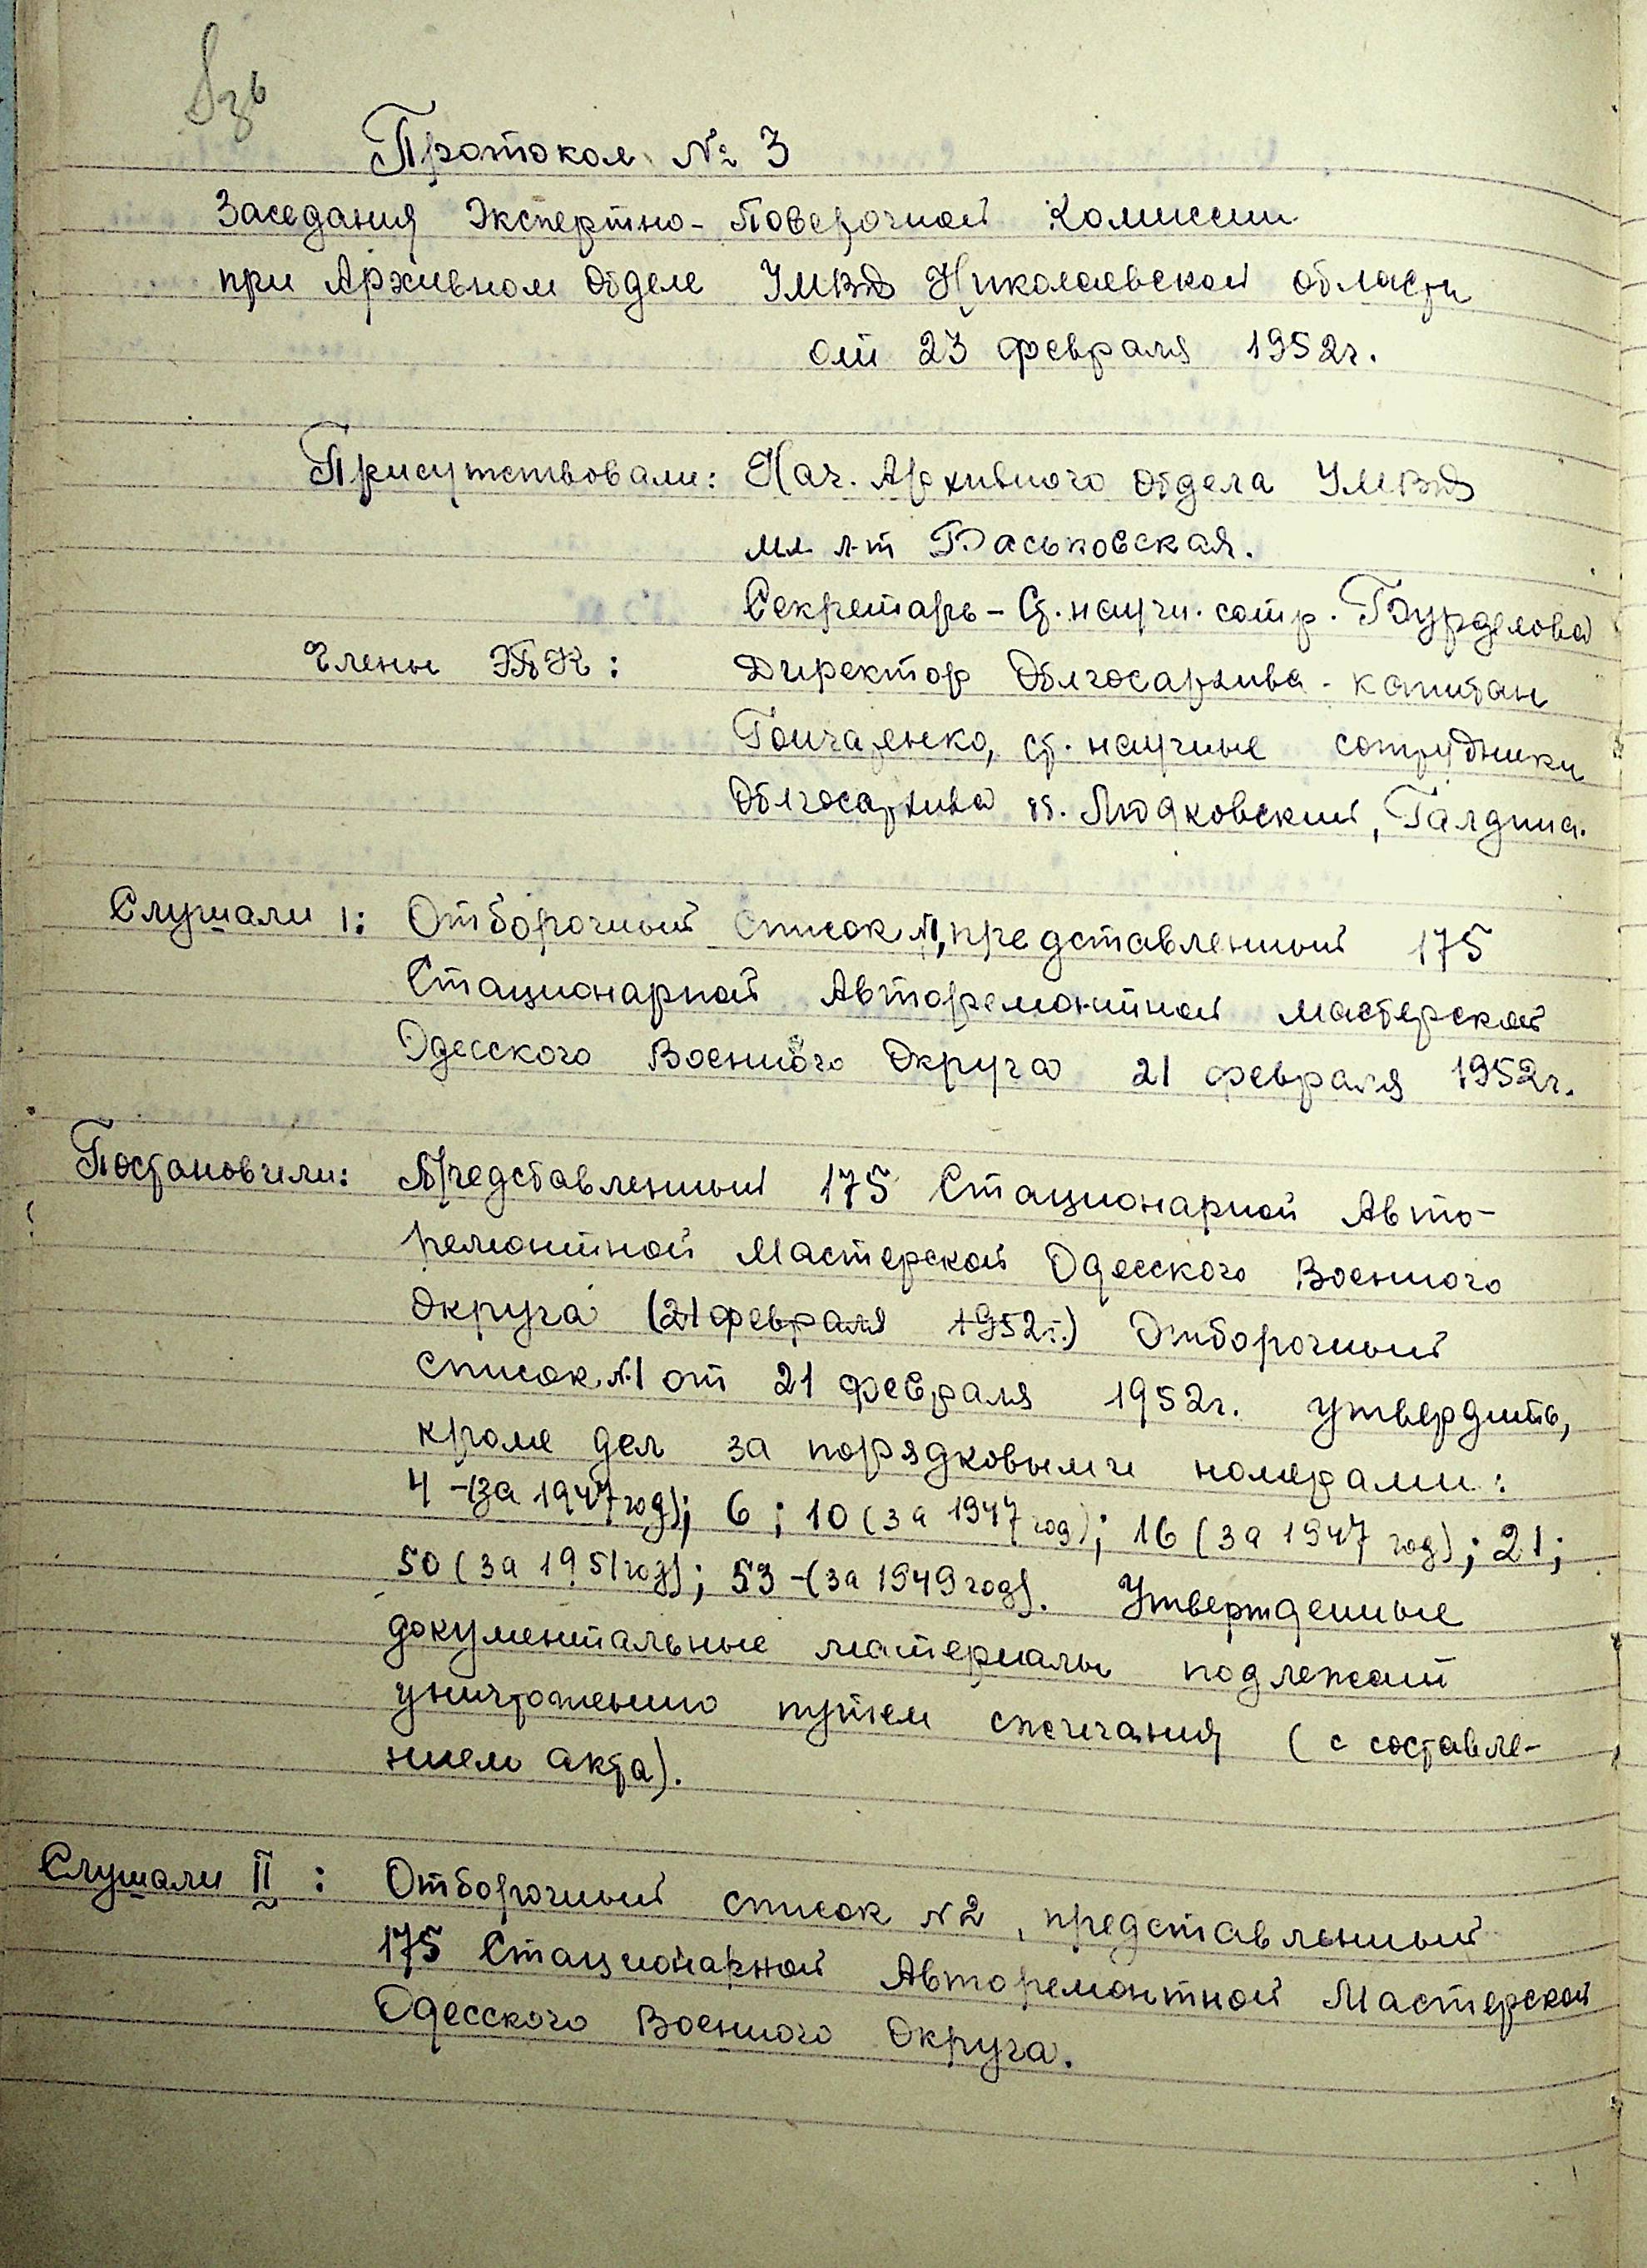 Протокол № 3
Заседания Экспертно-Поверочной Комиссии
при Архивном Отделе УМВД Николаевской области
от 23 февраля 1952г.
Присутствовали: Нач. Архивного Отдела УМВД
мл. л-т Васьковская.
Секретарь – Ст. научн. сотр. Бурделова
Члены ЭПК: Директор Облгосархива - капитан
Гончаренко, ст. научные сотрудники
Облгосархива тт. Людковский, Галдина.
Слушали I: Отборочный список №1, представленный 175
Стационарной Авторемонтной мастерской
Одесского Военного Округа 21 февраля 1952г.
Постановили: Представленный 175 Стационарной Авто-
ремонтной Мастерской Одесского Военного
Округа (21 февраля 1952г.) Отборочный
список №1 от 21 февраля 1952г. утвердить,
кроме дел за порядковыми номерами:
4 -(за 1947 год); 6 ; 10 (за 1947 год); 16 (за 1947 год); 21;
50 (за 1951 год); 53 -(за 1949 год). Утвержденные
документальные материалы подлежат
уничтожению путем сжигания ( с составле-
нием акта).
Слушали II : Отборочный список №2, представленный
175 Стационарной Авторемонтной Мастерской
Одесского Военного Округа.